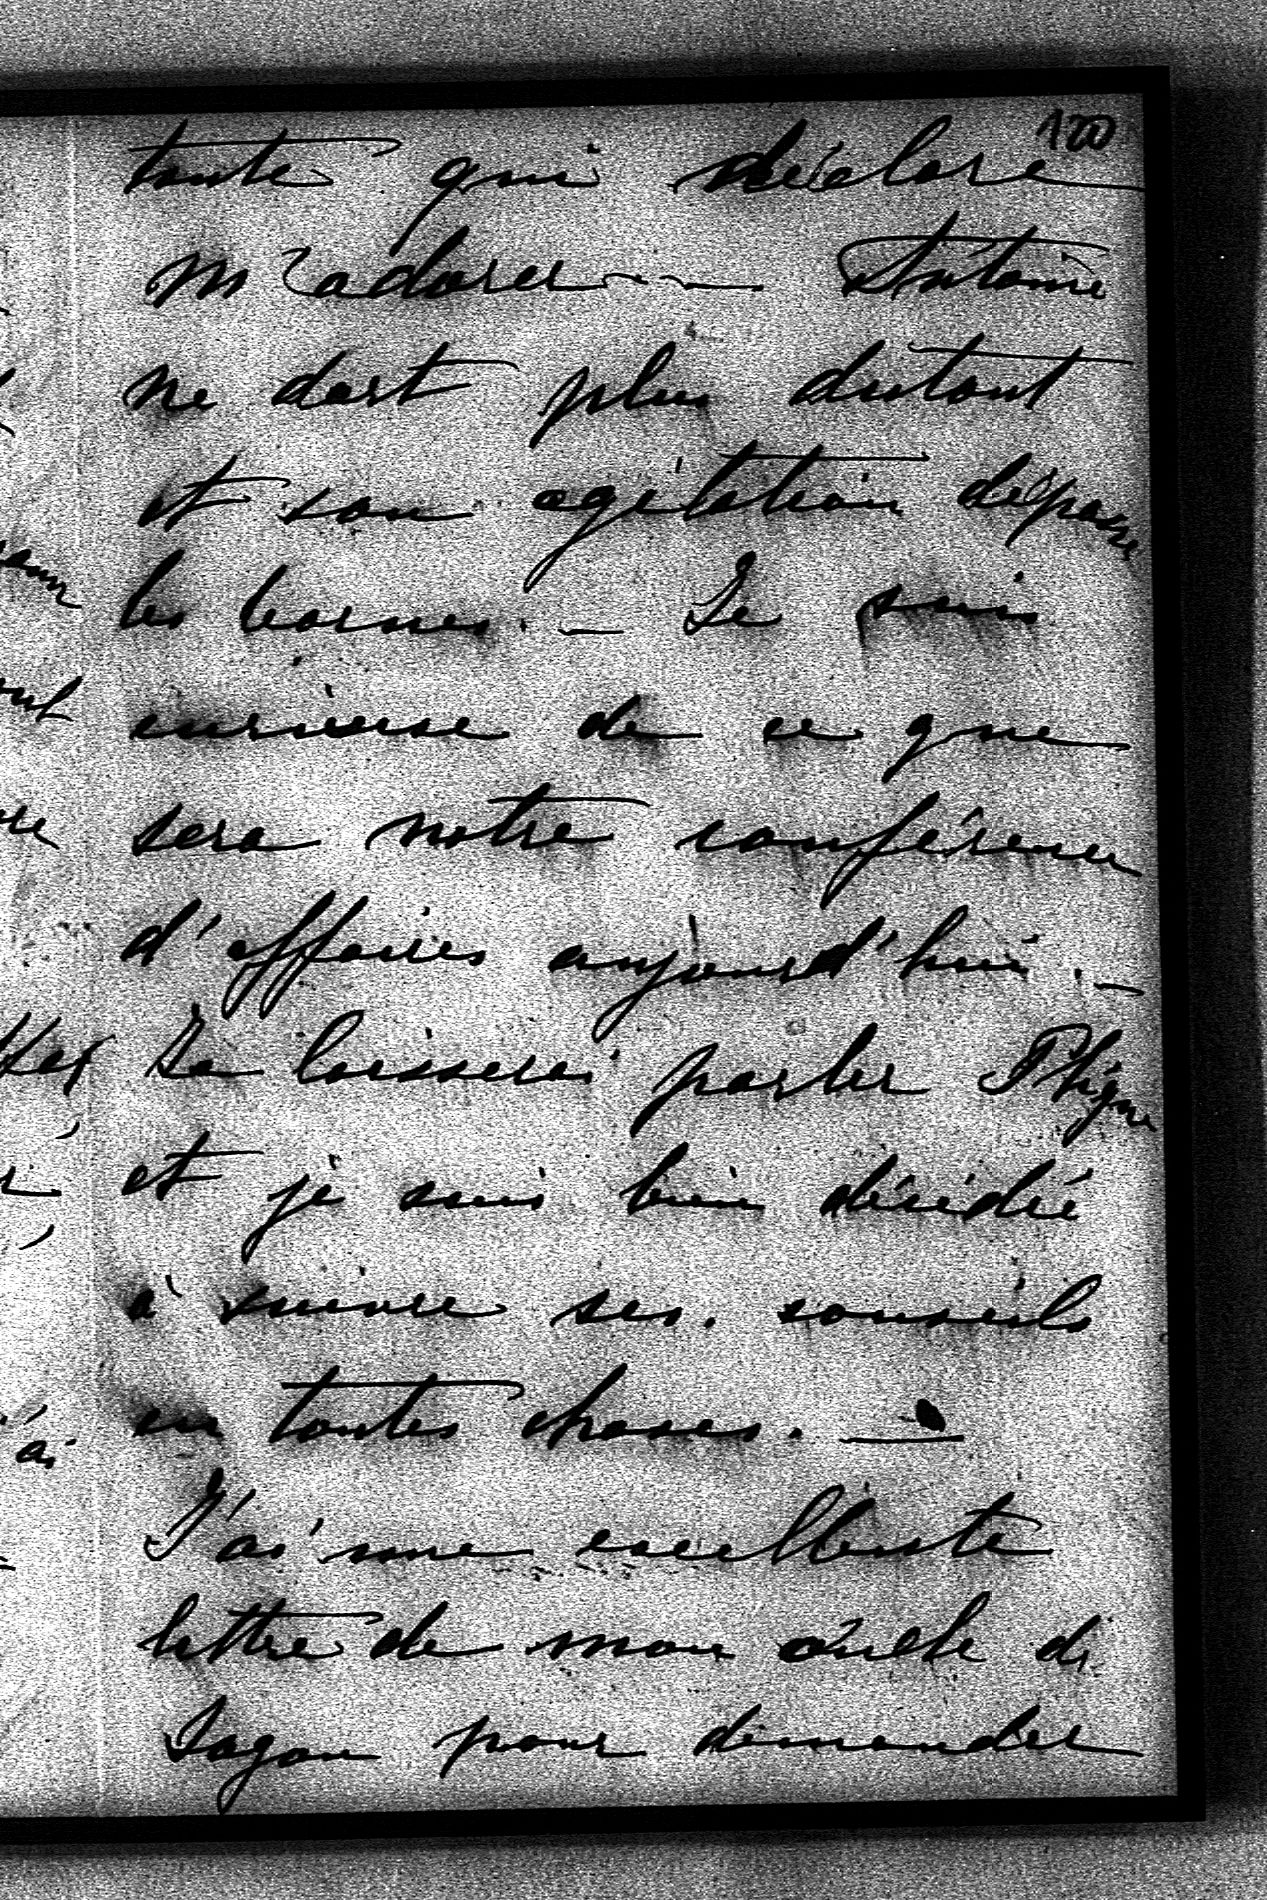 100
tante qui déclare
m'adorer — Antoine
ne dort plus dutout
et son agitation dépasse
les bornes. — Je suis
curieuse de ce que
sera notre conférence
d'affaires aujourd'hui. —
Je laisserai parler Phigne
et je suis bien décidée
à suivre ses. conseils
en toutes choses. —
J'ai une excellente
lettre de mon oncle de
Sagan pour demander